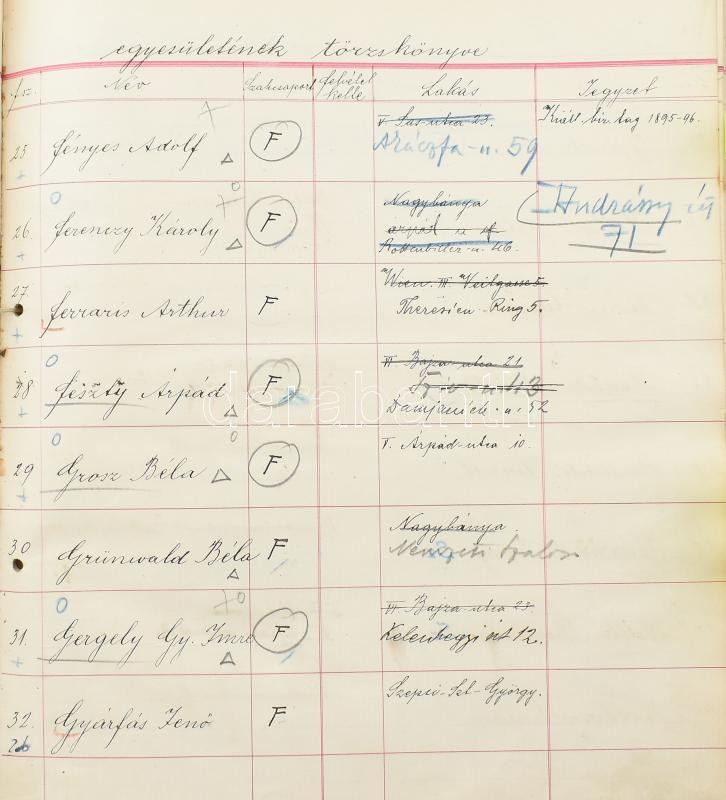 egyesületének törzskönyve
f. sz. Név Szakcsoport felvétel kelte Lakás Jegyzet
25 Fényes Adolf F V. Sas-utca 23. Kiáll. biz. tag 1895-96.
Aráczfa-u. 59
26. Ferenczy Károly F Nagybánya Andrássy út
árpád u 71
Rottenbiller-u. 46.
27. Ferraris Arthur F Wien. III. Veitgasse 5.
Theresien-Ring 5.
28 Feszty Árpád F VI Bajza utca 21
13
Damjanich-u. 52
29 Grosz Béla F V. Árpád-utca 10.
30 Grünwald Béla F Nagybánya.
Nemzeti Szalon
31. Gergely Gy. Imre F VI. Bajza utca 23.
Kelenhegyi út 12.
32. Gyárfás Jenő F Szepsi-Szt-György.
26
darabanth